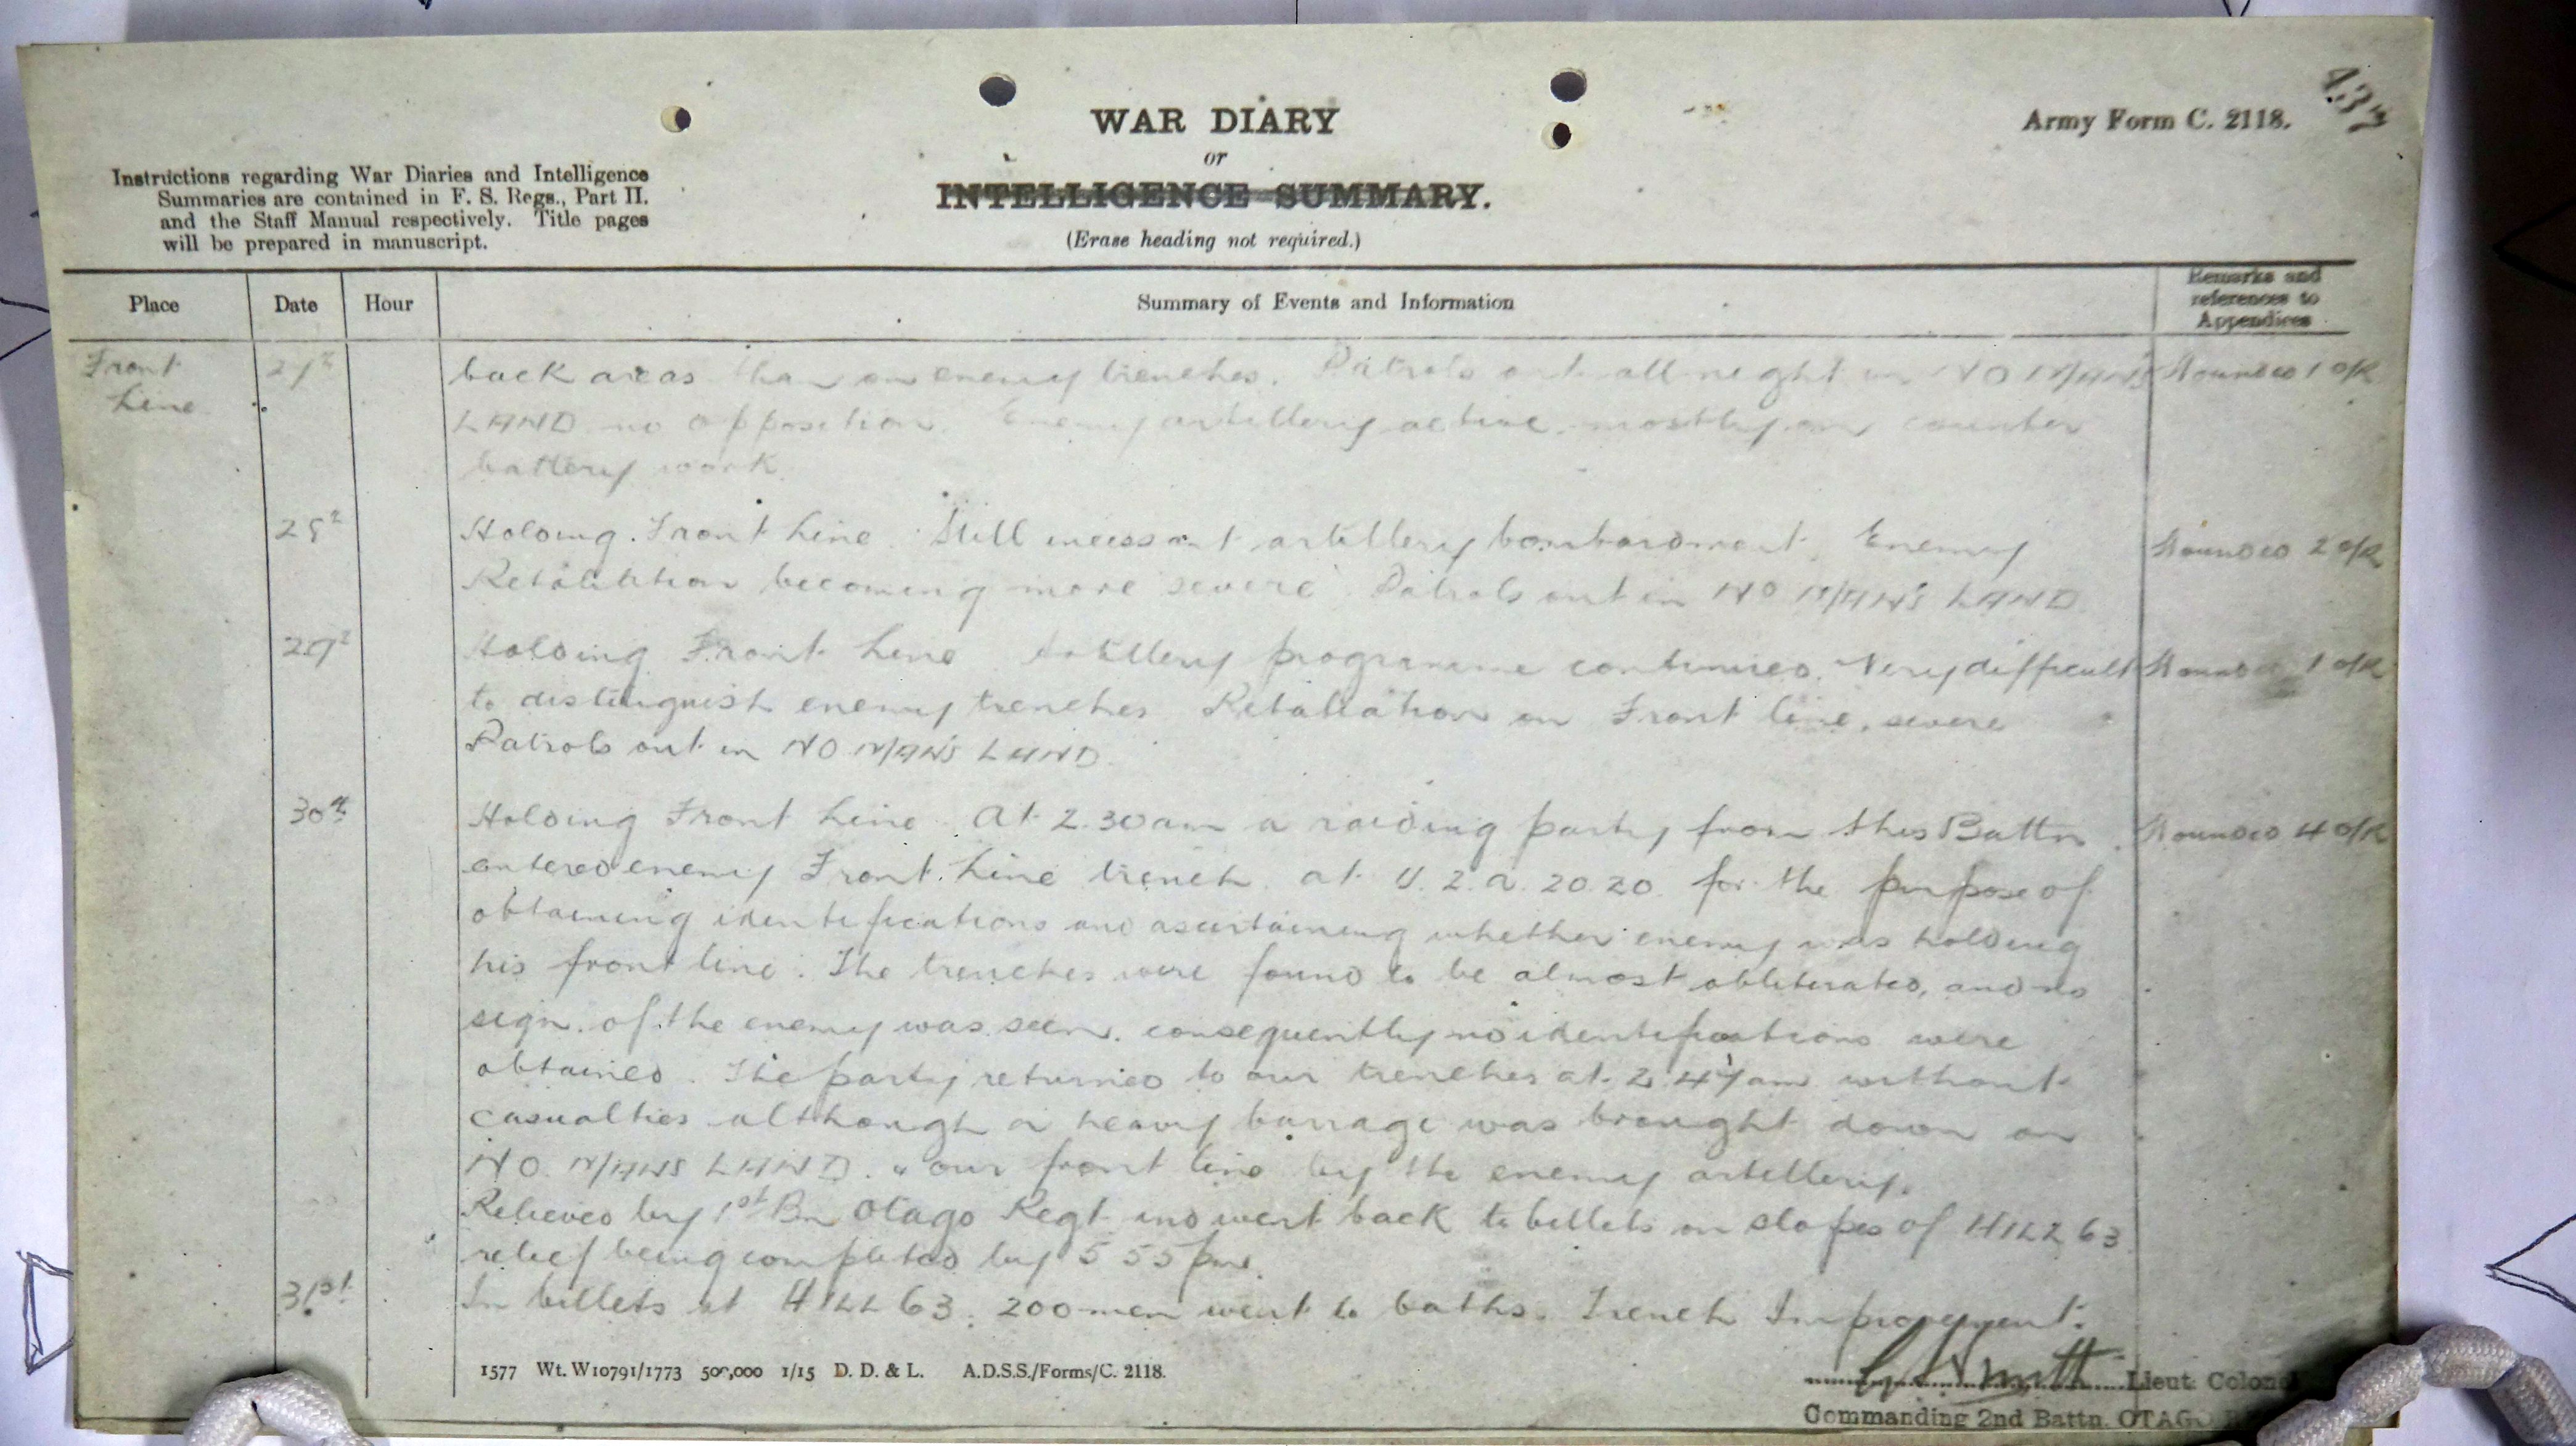 WAR DIARY
or
INTELLIGENCE SUMMARY.
(Erase heading not required.)
Army Form C. 2118.
Instructions regarding War Diaries and Intelligence
Summaries are contained in F. S. Regs., Part II.
and the Staff Manual respectively. Title pages
will be prepared in manuscript.
Place Date Hour Summary of Events and Information Remarks and references to Appendices
Front 27th back areas than on enemy trenches. Patrols out all night in NO MAN'S Wounded 1 O/R
Line LAND no opposition. Enemy artillery active mostly on counter
battery work.
28th Holding Front Line. Still incessant artillery bombardment. Enemy Wounded 2 O/R
Retaliation becoming more severe. Patrols out in NO MAN'S LAND
29th Holding Front Line. Artillery programme continued. Very difficult Wounded 1 O/R
to distinguish enemy trenches Retaliation on Front line, severe
Patrols out in NO MAN'S LAND.
30th Holding Front Line. At 2.30am a raiding party from this Battn Wounded 4 O/R
entered enemy Front Line trench at U. 2. a. 20.20. for the purpose of
obtaining identifications and ascertaining whether enemy was holding
his front line. The trenches were found to be almost obliterated, and no
sign of the enemy was seen. consequently no identifications were
obtained. The party returned to our trenches at 2.47am without
casualties although a heavy barrage was brought down on
NO MANS LAND. & our front line by the enemy artillery.
Relieved by 1st Bn Otago Regt and went back to billets on slopes of HILL 63
relief being completed by 5 55 pm.
31st In billets at HILL 63. 200 men went to baths. Trench Improvement.
1577 Wt. W10791/1773 500,000 1/15 D. D. & L. A.D.S.S./Forms/C. 2118.
Smith Lieut. Colonel
Commanding 2nd Battn. OTAGO